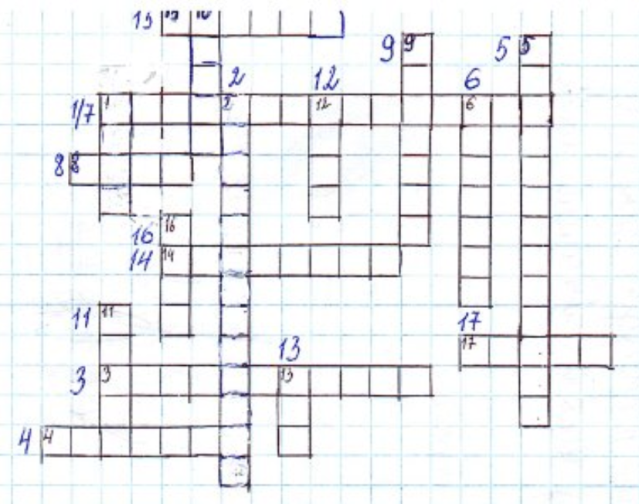 15 15 10
9 9 5 5
2 12 6
1/7 1 2 12 6
8 8
16 16
14 14
11 11 17
17
13
3 3 13
4 4